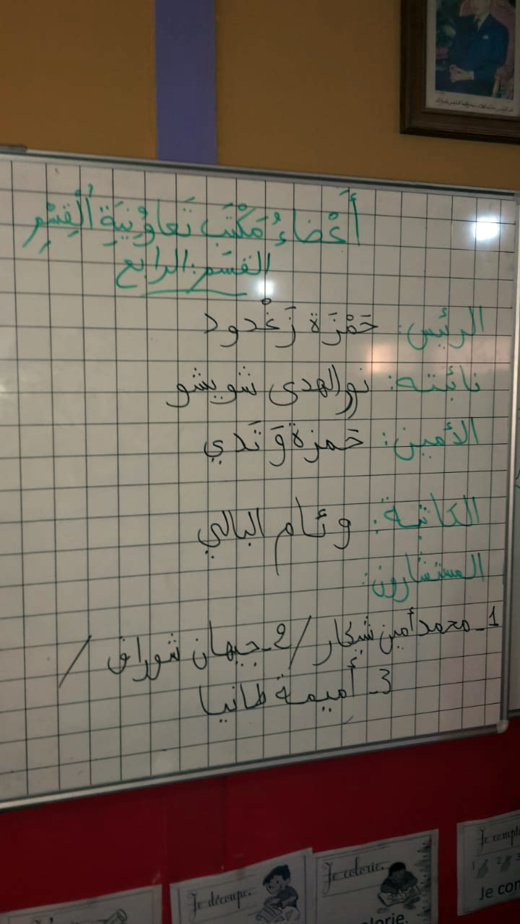 أَعْضاءُ مَكْتَبِ تَعاوُنِيَةِ اُلْقِسْمِ
القسم: الرابع
الرئيس: حَمْزَة زَغْدود
نائبته: نورالهدى شويشو
الأمين: حَمزة وَنَدي
الكاتبة: وئام البالي
المستشارون:
1_ محمد أمين شكار / 2_ جيهان شوراق /
3_ أميمة طانيا
Je découpe.
Je colorie.
colorie.
Je comp
Je con